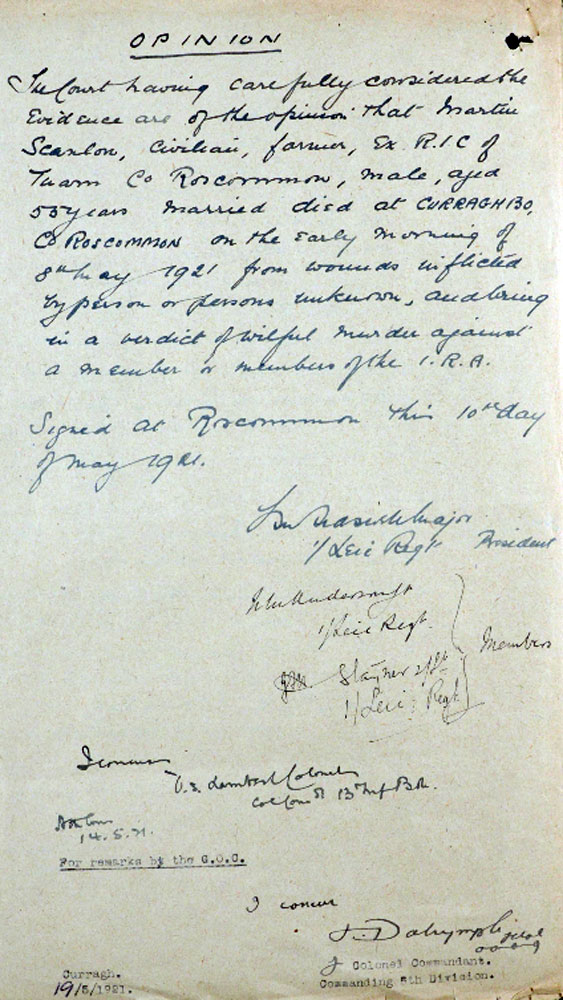 OPINION
The Court having carefully considered the
Evidence are of the opinion that Martin
Scanlon, Civilian, farmer, Ex R.I.C of
Tuam Co Roscommon, male, aged
55 years married died at CURRAGHBO,
CO ROSCOMMON on the early morning of
8th May 1921 from wounds inflicted
by person or persons unknown, and bring
in a verdict of wilful murder against
a member or members of the I.R.A.
Signed at Roscommon this 10th day
of May 1921.
Major
1/Leic Regt President
1/Leic Regt.
Members
Stayner 2/Lt
1/Leic: Regt
I concur
Lambert Colonel
Col Com dt 13th Inf Bde.
14.5.21.
For remarks by the G.O.C.
I concur
Dalrymple
Colonel Commandant.
Curragh.
Commanding 5th Division.
19/5/1921.